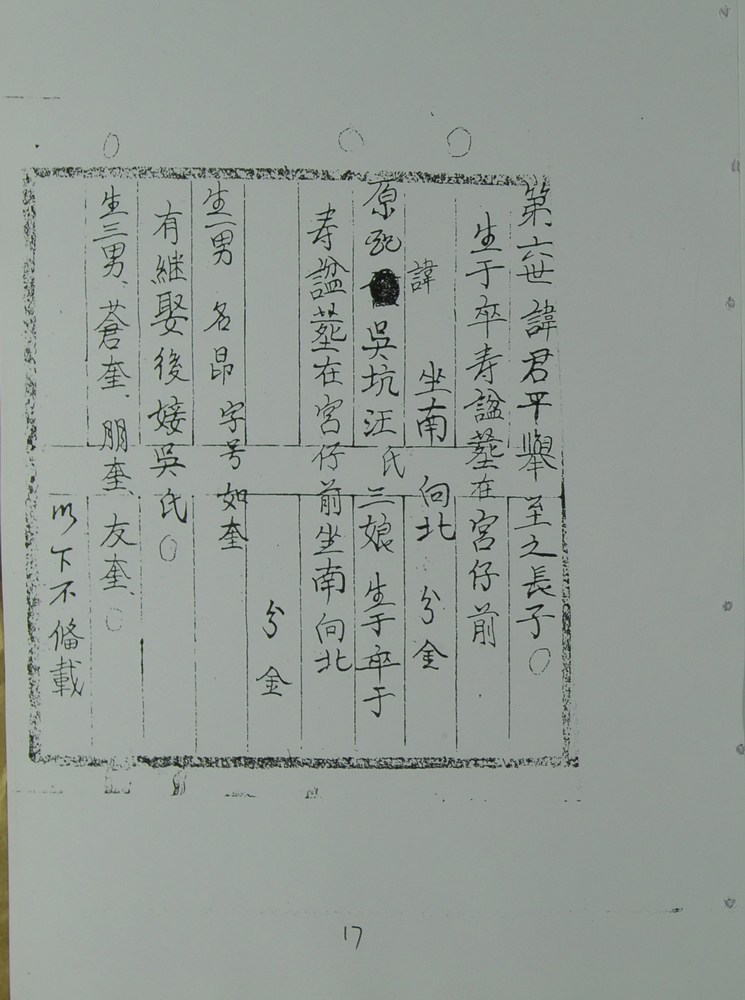 第六世 諱君平舉 至之長子○
生于卒寿諡塟在宮仔前
諱 坐南 向北 分金
原配 吳坑汪氏三娘 生于卒于
寿諡塟在宮仔前坐南向北
分金
生一男 名昂 字号如奎
有継娶後婈吳氏○
生三男、蒼奎、朋奎、友奎、○
以下不偹載
17